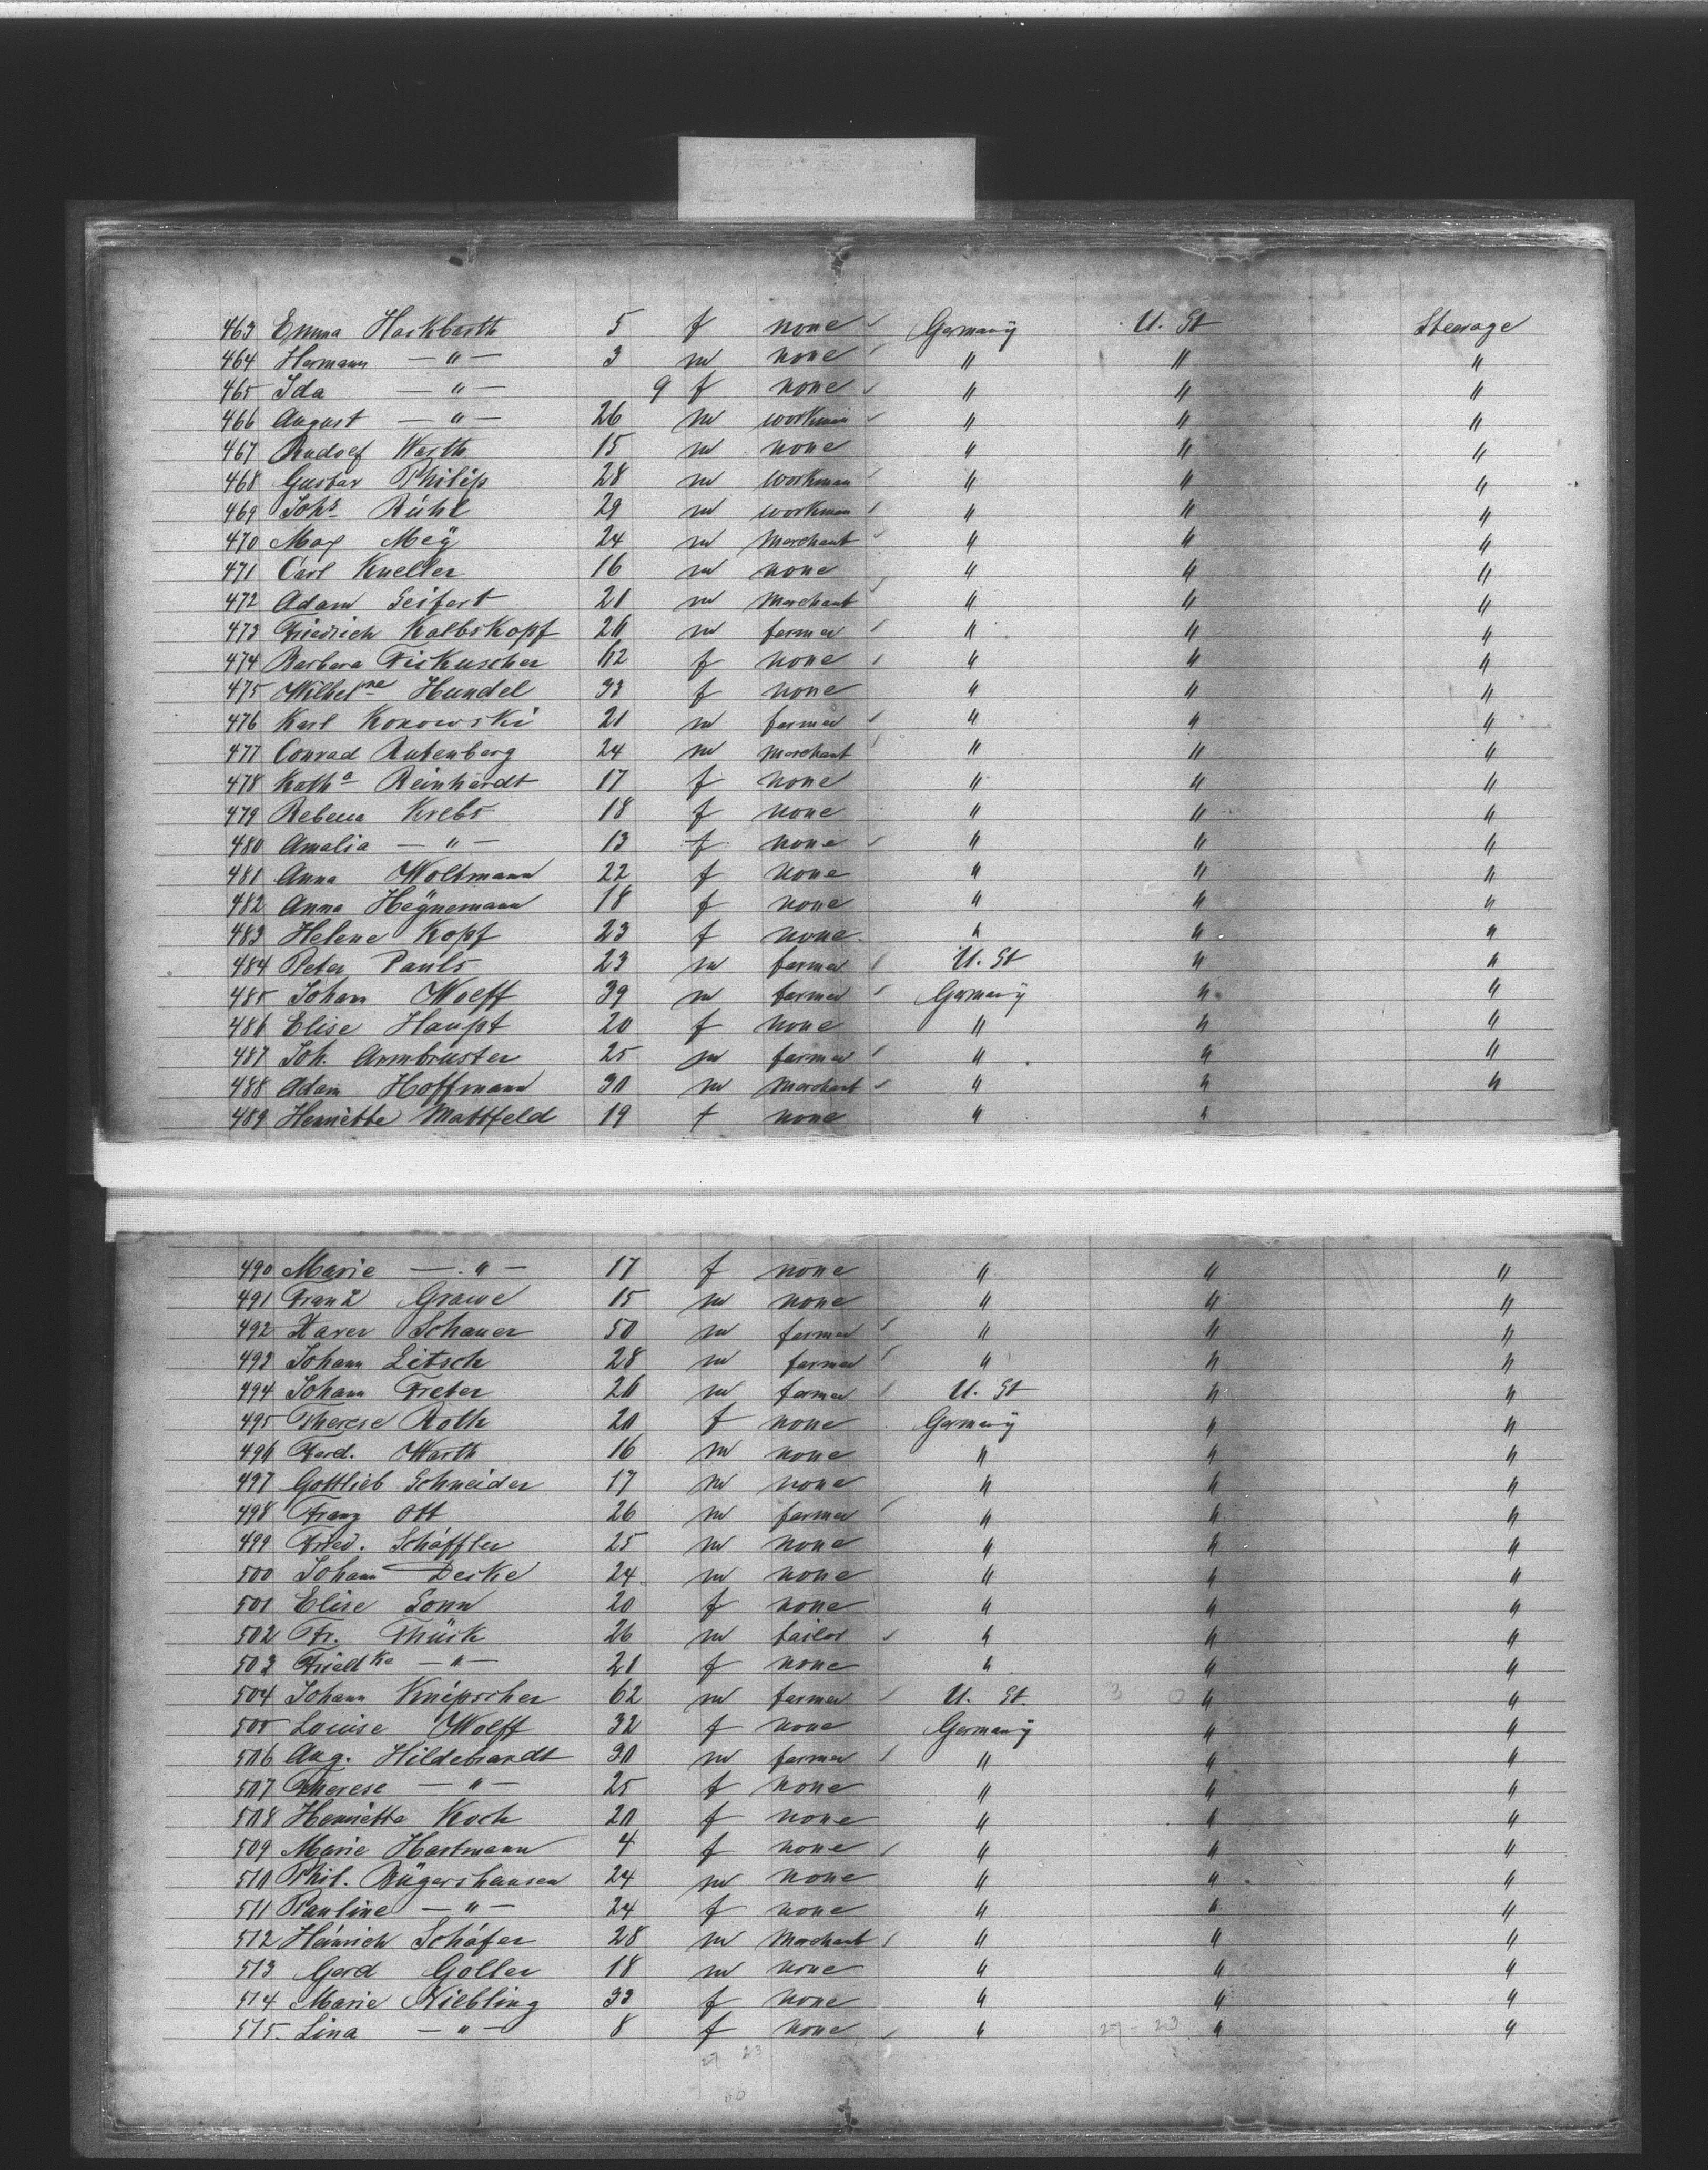 463 Emma Hackbarth 5 f none Germany U. St Steerage
464 Hermann — " — 3 m none " " "
465 Ida — " — 9 f none " " "
466 August — " — 26 m workman " " "
467 Rudolf Warth 15 m none " " "
468 Gustav Philip 28 m workman " " "
469 Johs Rühl 29 m workman " " "
470 Max Meÿ 24 m Merchant " " "
471 Carl Kneller 16 m none " " "
472 Adam Seifert 21 m Merchant " " "
473 Friedrich Kalbskopf 20 m farmer " " "
474 Barbara Fickuscher 62 f none " " "
475 Wilhelmne Hundel 33 f none " " "
476 Karl Konowski 21 m farmer " " "
477 Conrad Rutenberg 24 m Merchant " " "
478 Katha Reinhardt 17 f none " " "
479 Rebecca Krebs 18 f none " " "
480 Amalia — " — 13 f none " " "
481 Anna Woltmann 22 f none " " "
482 Anna Heÿnemann 18 f none " " "
483 Helene Kopf 23 f none " " "
484 Peter Pauls 23 m farmer U. St " "
485 Johann Wolff 39 m farmer Germany " "
486 Elise Haupt 20 f none " " "
487 Joh. Armbruster 25 m farmer " " "
488 Adam Hoffmann 30 m Merchant " " "
489 Henriette Mattfeld 19 f none " "
490 Marie — " — 17 f none " " "
491 Frank Grawe 15 m none " " "
492 Xaver Schauer 50 m farmer " " "
493 Johann Litsch 28 m farmer " " "
494 Johann Freter 20 m farmer U. St " "
495 Therese Roth 20 f none Germany " "
496 Ferd. Warth 16 m none " " "
497 Gottlieb Schneider 17 m none " " "
498 Franz Ott 26 m farmer " " "
499 Fried. Schäffler 25 m none " " "
500 Johann Decke 24 m none " " "
501 Elise Sonn 20 f none " " "
502 Fr. Thück 26 m tailor " " "
503 Friedke — " — 21 f none " " "
504 Johann Knipscher 62 m farmer U. St. 3 0 " "
505 Louise Wolff 32 f none Germany " "
506 Aug. Hildebrandt 30 m farmer " " "
507 Therese — " — 25 f none " " "
508 Henriette Koch 20 f none " " "
509 Marie Hartmann 4 f none " " "
510 Phil. Bügershausen 24 m none " " "
511 Pauline — " — 24 f none " " "
512 Heinrich Schäfer 28 m Merchant " " "
513 Gerd Goller 18 m none " " "
514 Marie Niebling 33 f none " " "
515 Lina — " — 8 f none " 27 - 23 " "
27 23
50